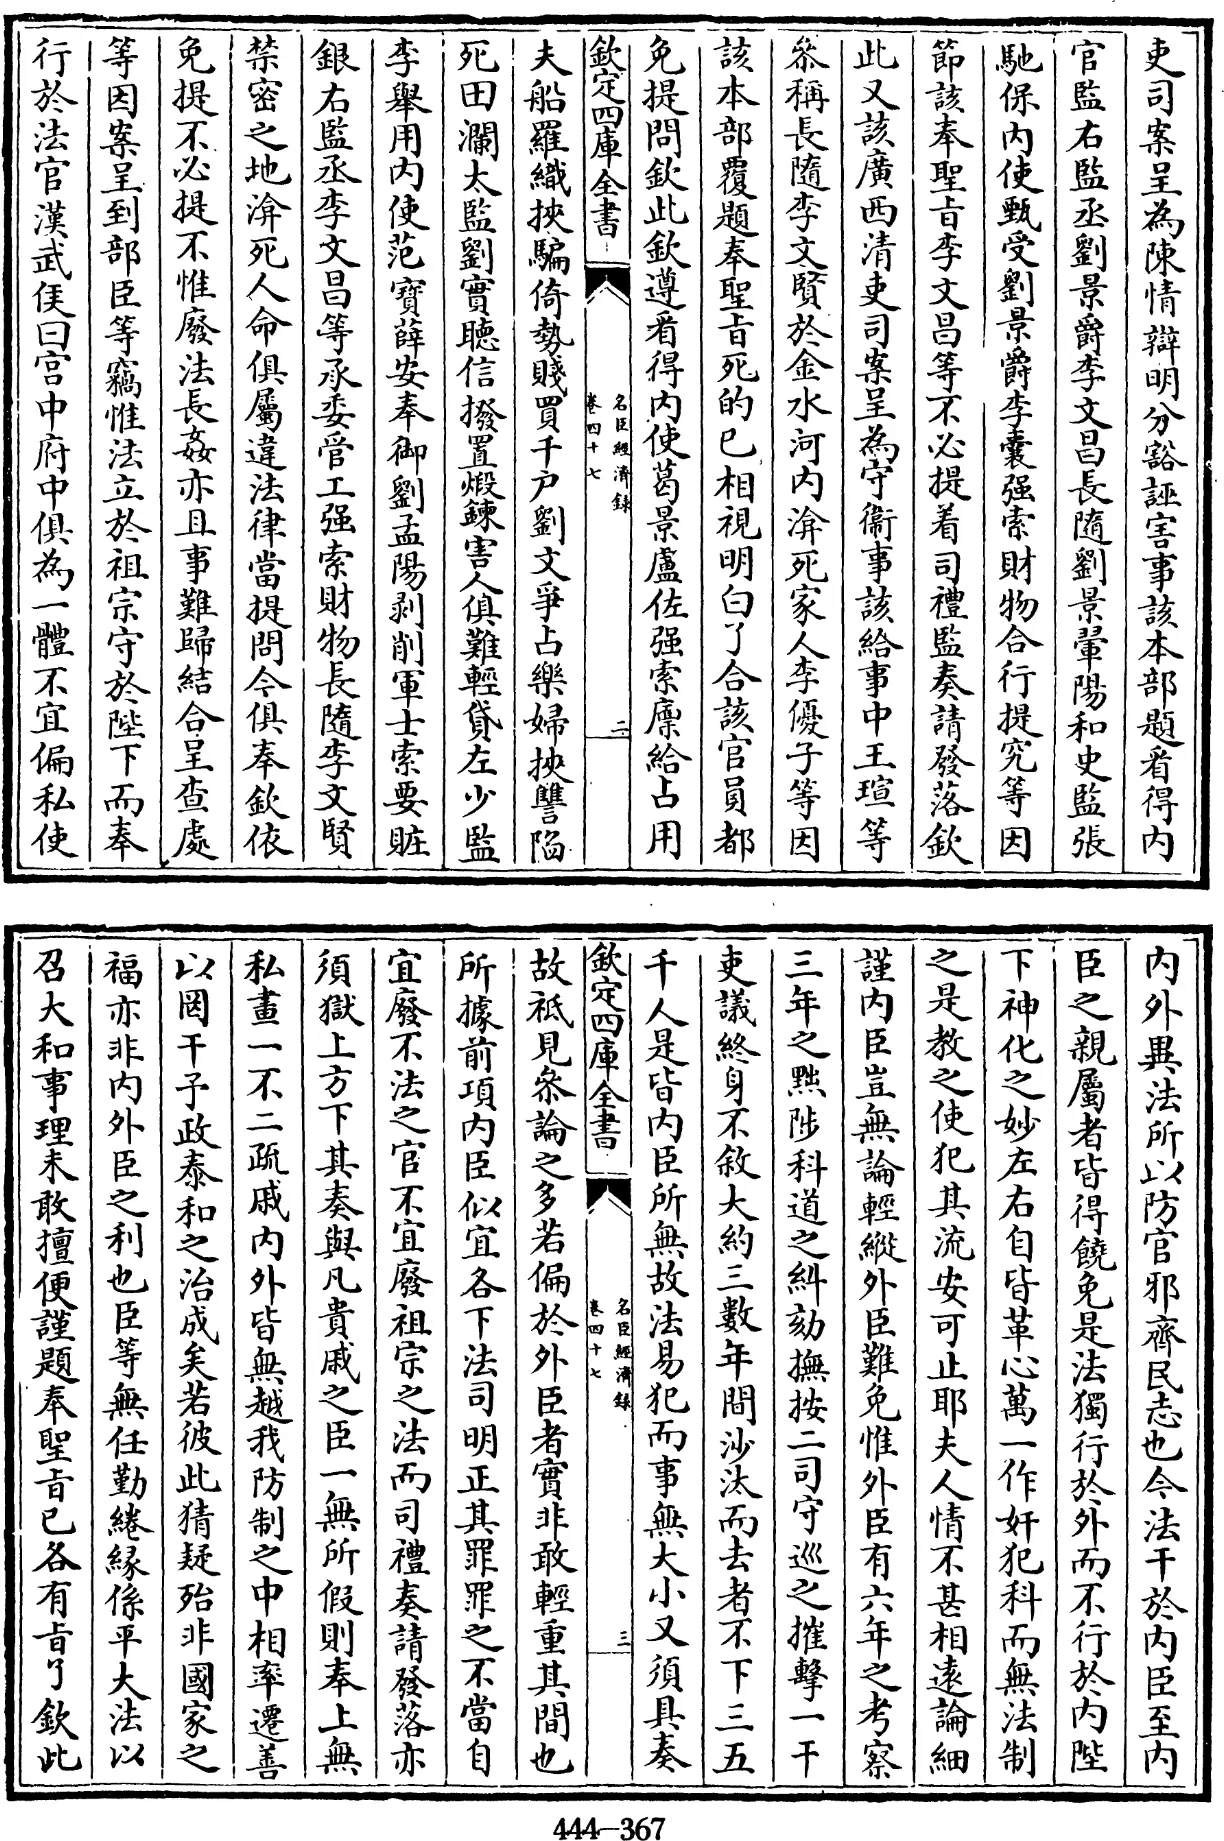 吏司案呈為陳情辯明分豁誣害事該本部題看得内
官監右監丞劉景爵李文昌長隨劉景暈陽和史監張
馳保内使甄受劉景爵李囊强索財物合行提究等因
節該奉聖旨李文昌等不必提着司禮監奏請發落欽
此又該廣西清吏司案呈為守衞事該給事中王瑄等
叅稱長隨李文賢於金水河内渰死家人李優子等因
該本部覆題奉聖旨死的已相視明白了合該官員都
免提問欽此欽遵看得内使葛景盧佐强索廪給占用
欽定四庫全書
名臣經濟録
卷四十七
二
夫船羅織挾騙倚勢賤買千户劉文爭占樂婦挾讐陷
死田瀾太監劉實聽信撥置煅鍊害人俱難輕貸左少監
李舉用内使范寶薛安奉御劉孟陽剥削軍士索要贓
銀右監丞李文昌等承委管工强索財物長隨李文賢
禁密之地渰死人命俱屬違法律當提問今俱奉欽依
免提不必提不惟廢法長姦亦且事難歸結合呈查處
等因案呈到部臣等竊惟法立於祖宗守於陛下而奉
行於法官漢武侯曰宫中府中俱為一體不宜偏私使
内外異法所以防官邪齊民志也今法干於内臣至内
臣之親屬者皆得饒免是法獨行於外而不行於内陛
下神化之妙左右自皆革心萬一作奸犯科而無法制
之是教之使犯其流安可止耶夫人情不甚相遠論細
謹内臣豈無論輕縱外臣難免惟外臣有六年之考察
三年之黜陟科道之糾劾撫按二司守巡之摧擊一干
吏議終身不敘大約三數年間沙汰而去者不下三五
千人是皆内臣所無故法易犯而事無大小又須具奏
欽定四庫全書
名臣經濟録
卷四十七
三
故祗見叅論之多若偏於外臣者實非敢輕重其間也
所據前項内臣似宜各下法司明正其罪罪之不當自
宜廢不法之官不宜廢祖宗之法而司禮奏請發落亦
須獄上方下其奏與凡貴戚之臣一無所假則奉上無
私畫一不二疏戚内外皆無越我防制之中相率遷善
以罔干予政泰和之治成矣若彼此猜疑殆非國家之
福亦非内外臣之利也臣等無任勤綣緣係平大法以
召大和事理未敢擅便謹題奉聖旨已各有旨了欽此
444-367